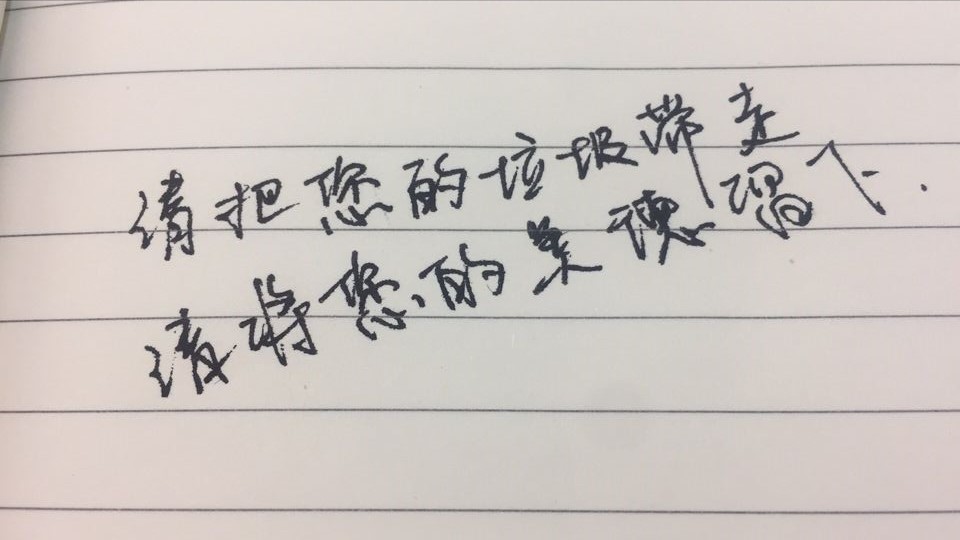 请把您的垃圾带走
请将您的美德留下.